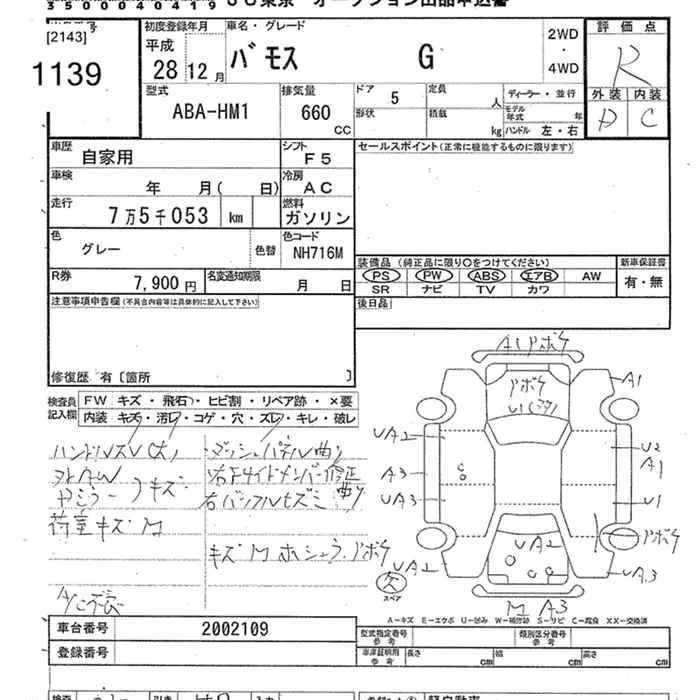 35000040419 JU東京 オークション出品申込書
[2143]
1139
初度登録年月
平成
28 12 月
車名・グレード
バモス G
2WD
・
4WD
評価点
R
外装 内装
D C
型式
ABA-HM1
排気量
660
CC
ドア
5
形状
定員
人
積載
kg
ディーラー・並行
モデル年式 年
ハンドル 左・右
車歴
自家用
シフト
F5
セールスポイント(正常に機能するものに限ります)
車検
年 月( 日)
冷房
AC
走行
7万5千053 km
燃料
ガソリン
色
グレー
色替
色コード
NH716M
装備品 (純正品に限り○をつけてください)
新車保証書
PS PW ABS エアB AW
有・無
SR ナビ TV カワ
R券
7,900 円
名変通知期限
月 日
後日品
注意事項申告欄(不具合内容等は具体的に記入して下さい)
修復歴 有〔箇所 〕
検査員記入欄
FW キズ・飛石・ヒビ割・リペア跡・×要
内装 キズ・汚レ・コゲ・穴・ズレ・キレ・破レ
ハンドルスレ(大)
ダッシュパネル曲り
右Fサイドメンバー修正
キズ
荷室キズM
A1
UA2
U2
A3
A1
UA3
U1
UA2
UA2
UA3
M A3
スペア
A-キズ E-エクボ U-凹み W-補修跡 S-サビ C-腐食 XX-交換済
車台番号
2002109
登録番号
型式指定番号
参考
類別区分番号
参考
車庫証明用
参考
長さ cm
幅 cm
高さ cm
軽自動車